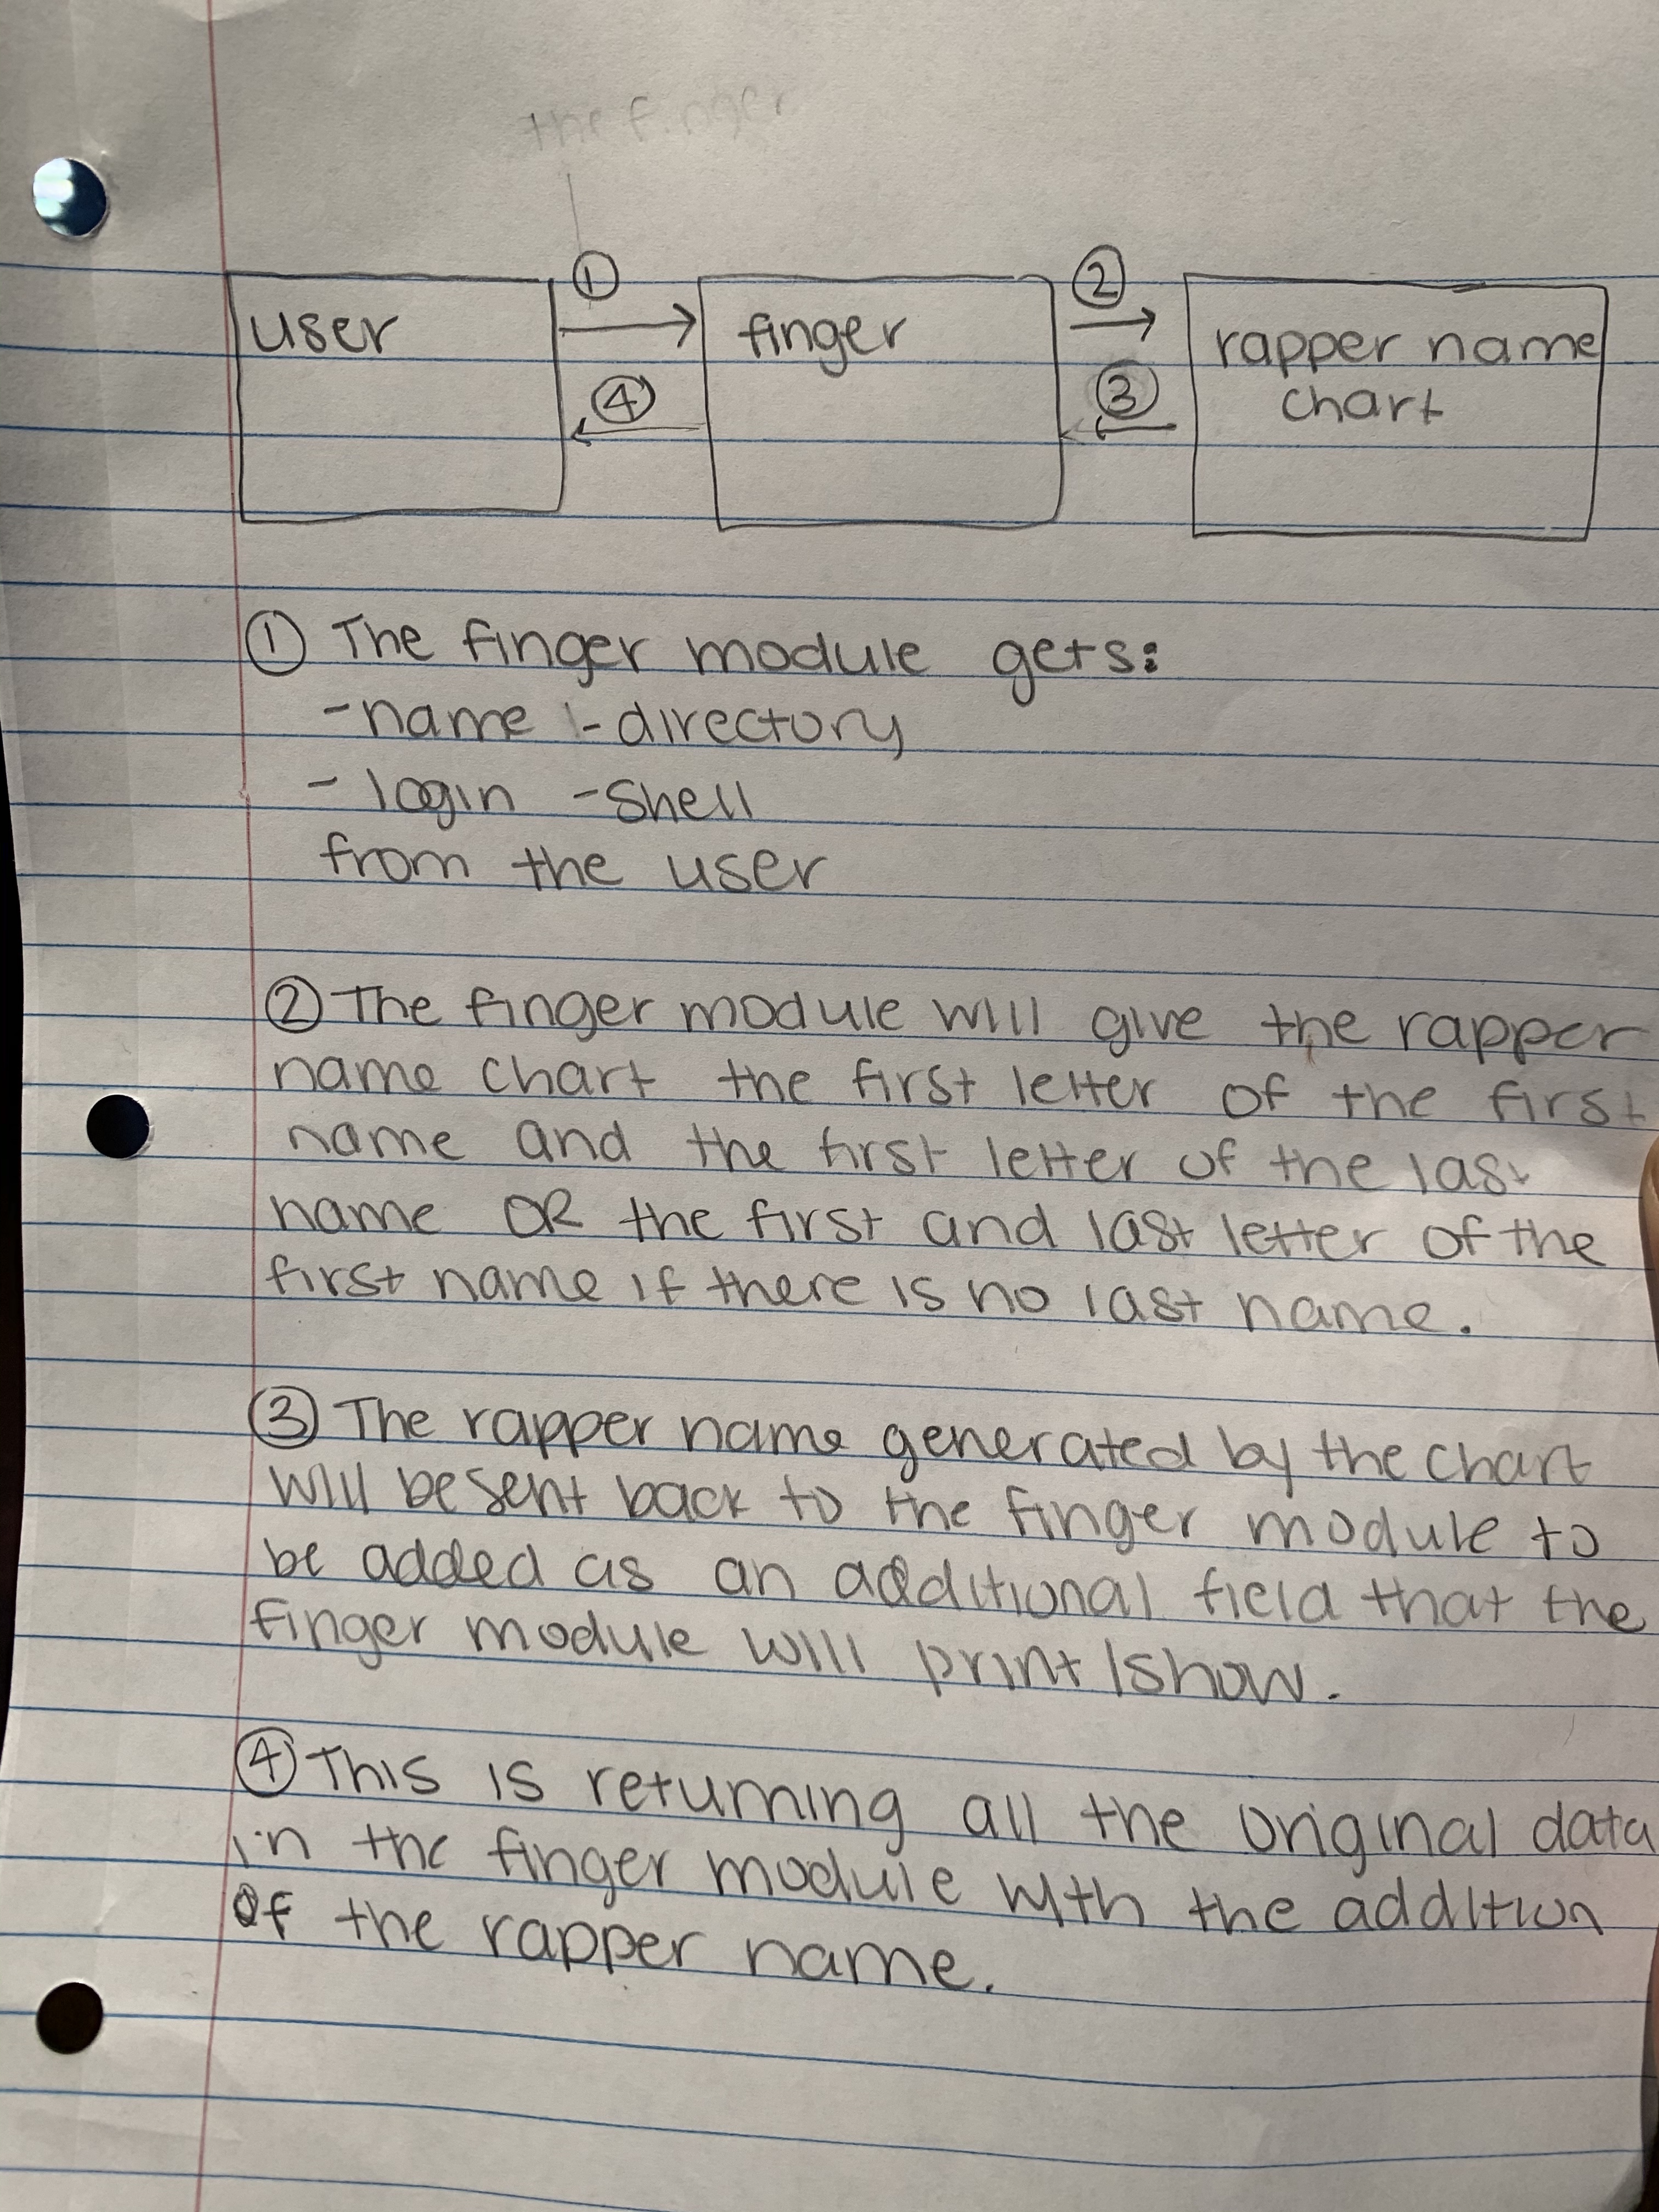 the finger
① ②
user → finger → rapper name
④ ③ chart
① The finger module gets:
-name -directory
- login -Shell
from the user
② The finger module will give the rapper
name chart the first letter of the first
name and the first letter of the last
name OR the first and last letter of the
first name if there is no last name.
③ The rapper name generated by the chart
will be sent back to the finger module to
be added as an additional field that the
finger module will print/show.
④ This is returning all the original data
in the finger module with the addition
of the rapper name.